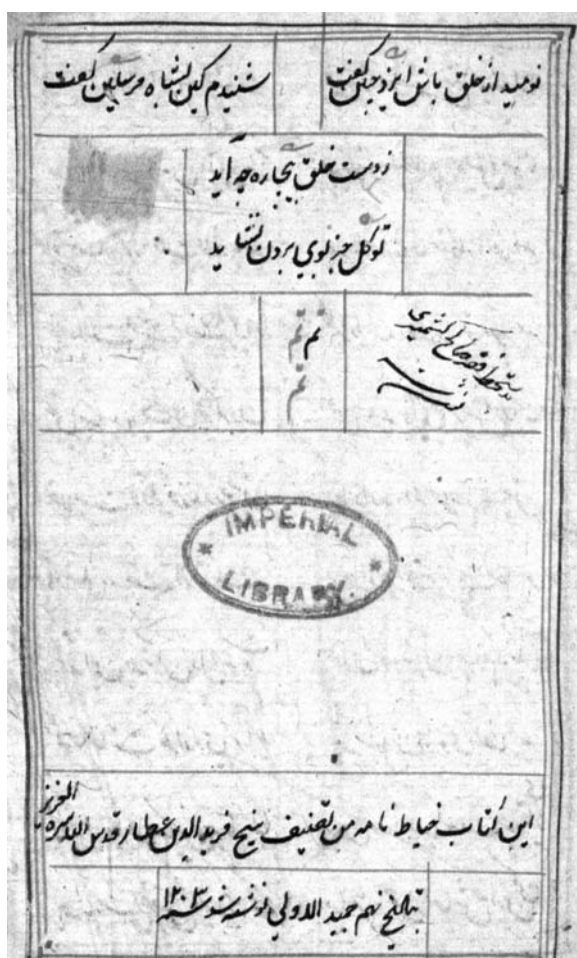 نومید از خلق باش ایزد چنین گفت
شنیدم کین لشاه مرسلین گفت
ز دست خلق بیچاره چه آید
توکل جز بوی بردن نشاید
تم
تم
تم
IMPERIAL
LIBRARY.
این کتاب خیاط نامه من تصنیف شیخ فرید الدین عطار قدس الله سره العزیز
بتاریخ نهم جمید الاولی نوشته شد سنه ۱۲۰۳